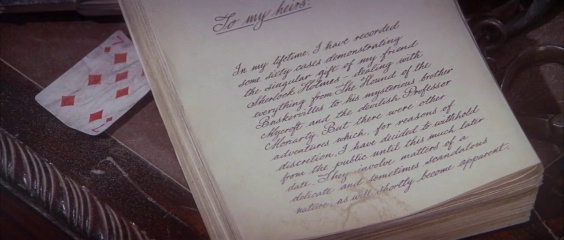 To my heirs:
In my lifetime, I have recorded
some sixty cases demonstrating
the singular gift of my friend
Sherlock Holmes - dealing with
everything from The Hound of the
Baskervilles to his mysterious brother
Mycroft and the devilish Professor
Moriarty. But there were other
adventures which, for reasons of
discretion, I have decided to withhold
from the public until this much later
date. They involve matters of a
delicate and sometimes scandalous
nature, as will shortly become apparent.